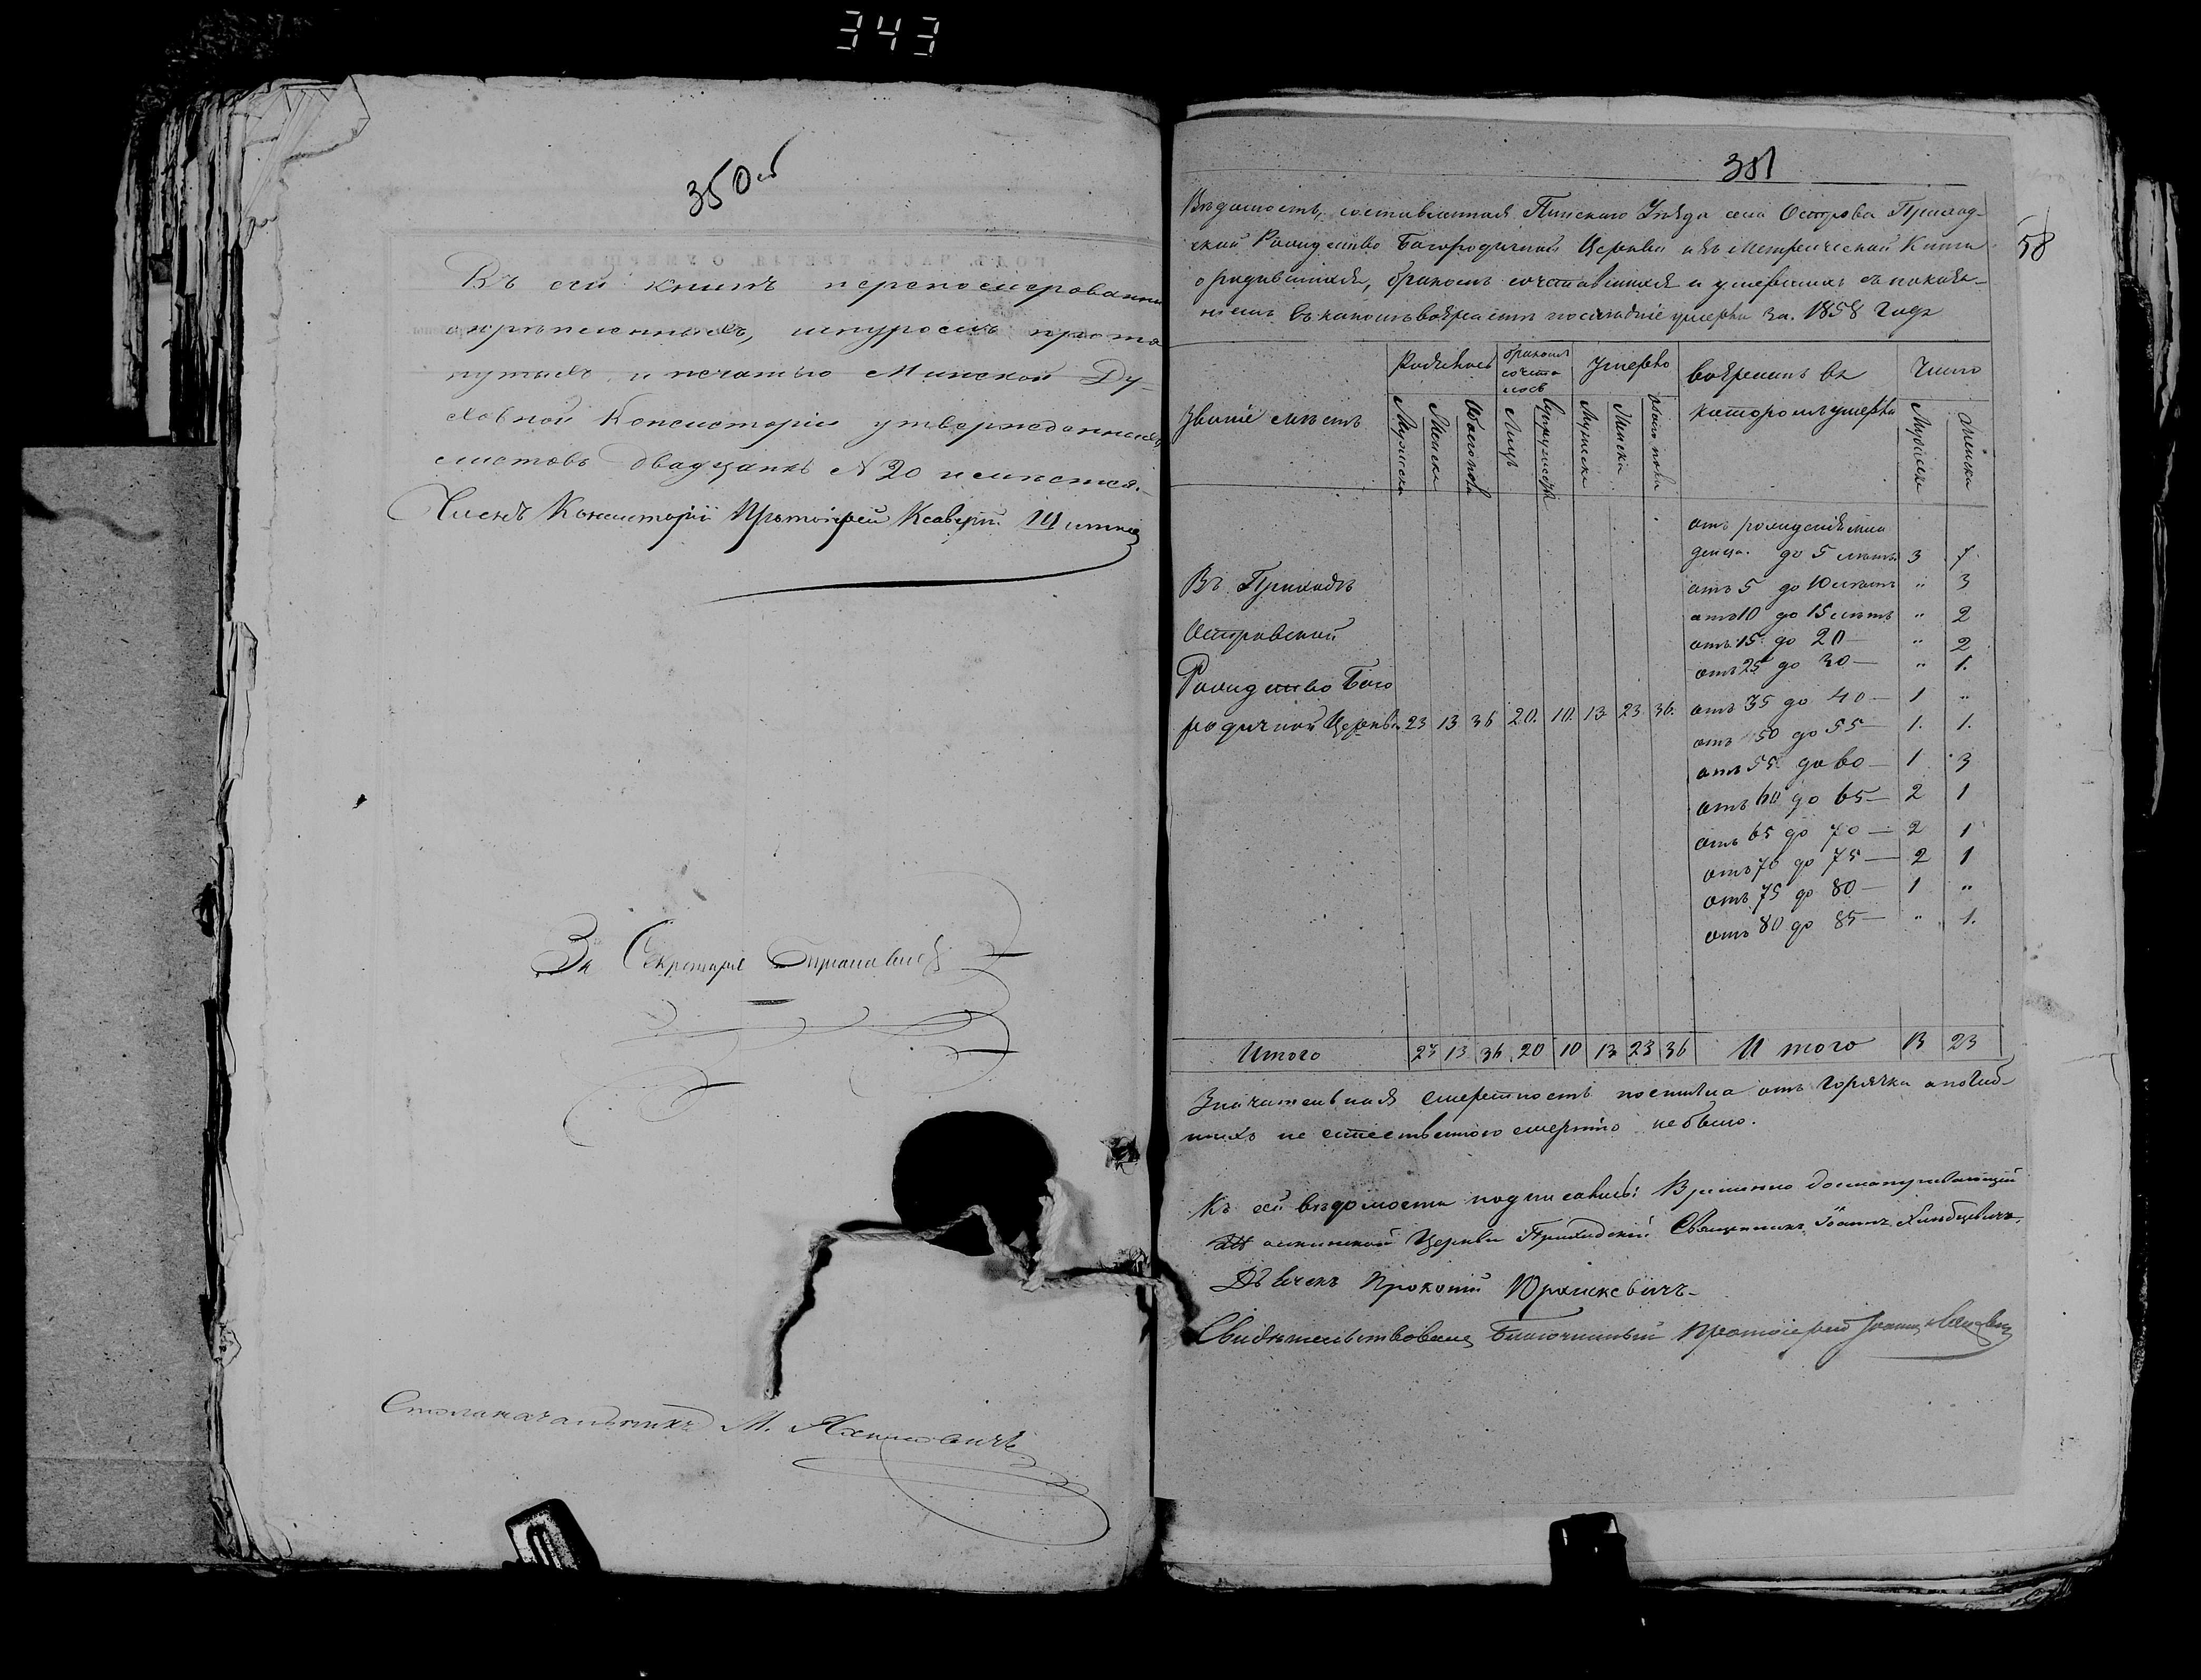 343
350 об
Въ сей книгѣ перенумерованныхъ
скрѣпленныхъ, шнуромъ протя
нутыхъ и печатью Минской Ду-
ховной Консисторіи утвержденныхъ
листовъ двадцать N 20 имѣется.
Членъ Консисторіи Протоіерей Ксаверій
За Секретаря
Столоначальникъ М. Яхимовичъ
351
58
Вѣдомость, составленная Пинскаго Уѣзда села Острова Приход-
ской Рождество Богородичной Церкви изъ Метрической Книги
о родившихся, бракомъ сочетавшихся и умершихъ съ показа-
ніемъ въ какомъ возрастѣ послѣдніе умерли за 1858 годъ
Званіе мѣстъ
Родилось
бракомъ
сочета
лось
Умерло
возрастъ въ
которомъ умерли
Число
Мужеска
Женска
Обоего пола
Лицъ
Супружествъ
Мужска
Женска
Обоего пола
Мужска
Женска
Въ Приходѣ
Островской
Рождество Бого
родичной Церкви 23 13 36 20. 10. 13 23 36.
отъ рожденія
до 5 лѣтъ 3 7.
отъ 5 до 10 лѣтъ " 3
отъ 10 до 15 лѣтъ " 2
отъ 15 до 20 — " 2
отъ 25 до 30 — " 1.
отъ 35 до 40 — 1 "
отъ 50 до 55 — 1. 1.
отъ 55 до 60 — 1 3
отъ 60 до 65 — 2 1
отъ 65 до 70 — 2 1
отъ 70 до 75 — 2 1
отъ 75 до 80 — 1 "
отъ 80 до 85 — " 1.
Итого 23 13 36 20 10 13 23 36 Итого 13 23
Значительная смертность постигла отъ горячки а погиб-
шихъ не естественною смертію не было.
Къ сей вѣдомости подписались: Временно
Церкви Приходскій Священникъ Іоаннъ
Дьячекъ Прокопій Юрашкевичъ
Свидѣтельствовалъ Благочинный Протоіерей